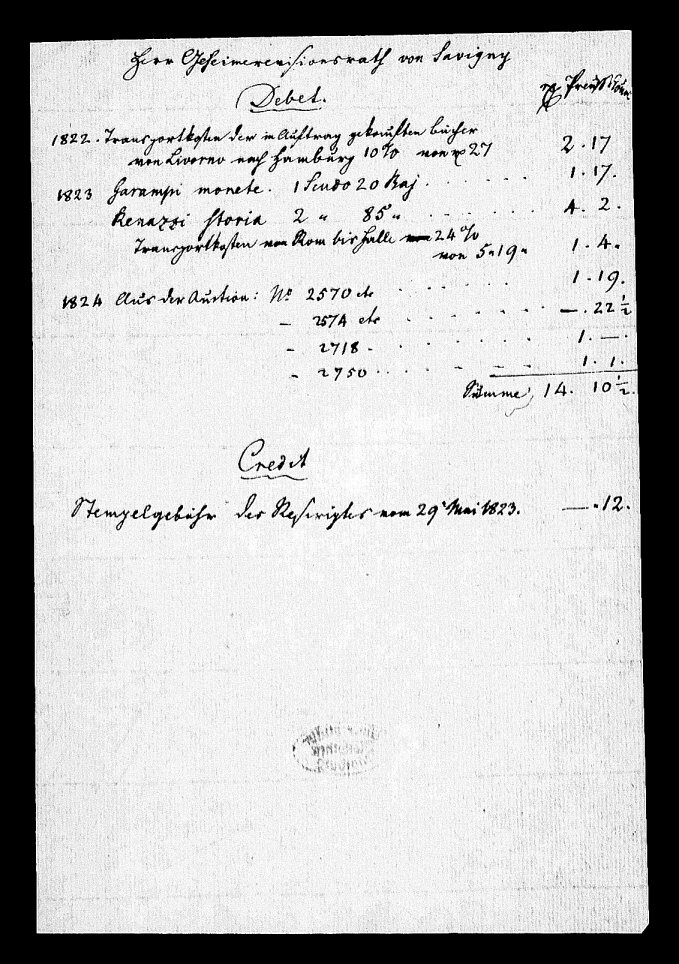 Herr Geheimerevisionsrath von Savigny
Debet.
rℓ Preuß Cour
1822. Transportkosten der in Auftrag gekauften Bücher
von Livorno nach Hamburg 10% von rℓ 27 2. 17
1823 Garampi monete. 1 Scudo 20 Baj. 1. 17.
Renazzi storia 2 " 85 " 4. 2.
Transportkosten von Rom bis Halle 24%
von 5 " 19 " 1. 4.
1824 Aus der Auction: No 2570 etc 1. 19.
– 2574 etc —. 22 1/2
– 2718 1. —.
– 2750 1. 1.
Summe 14. 10 1/2.
Credit
Stempelgebühr des Rescriptes vom 29 Mai 1823. —. 12.